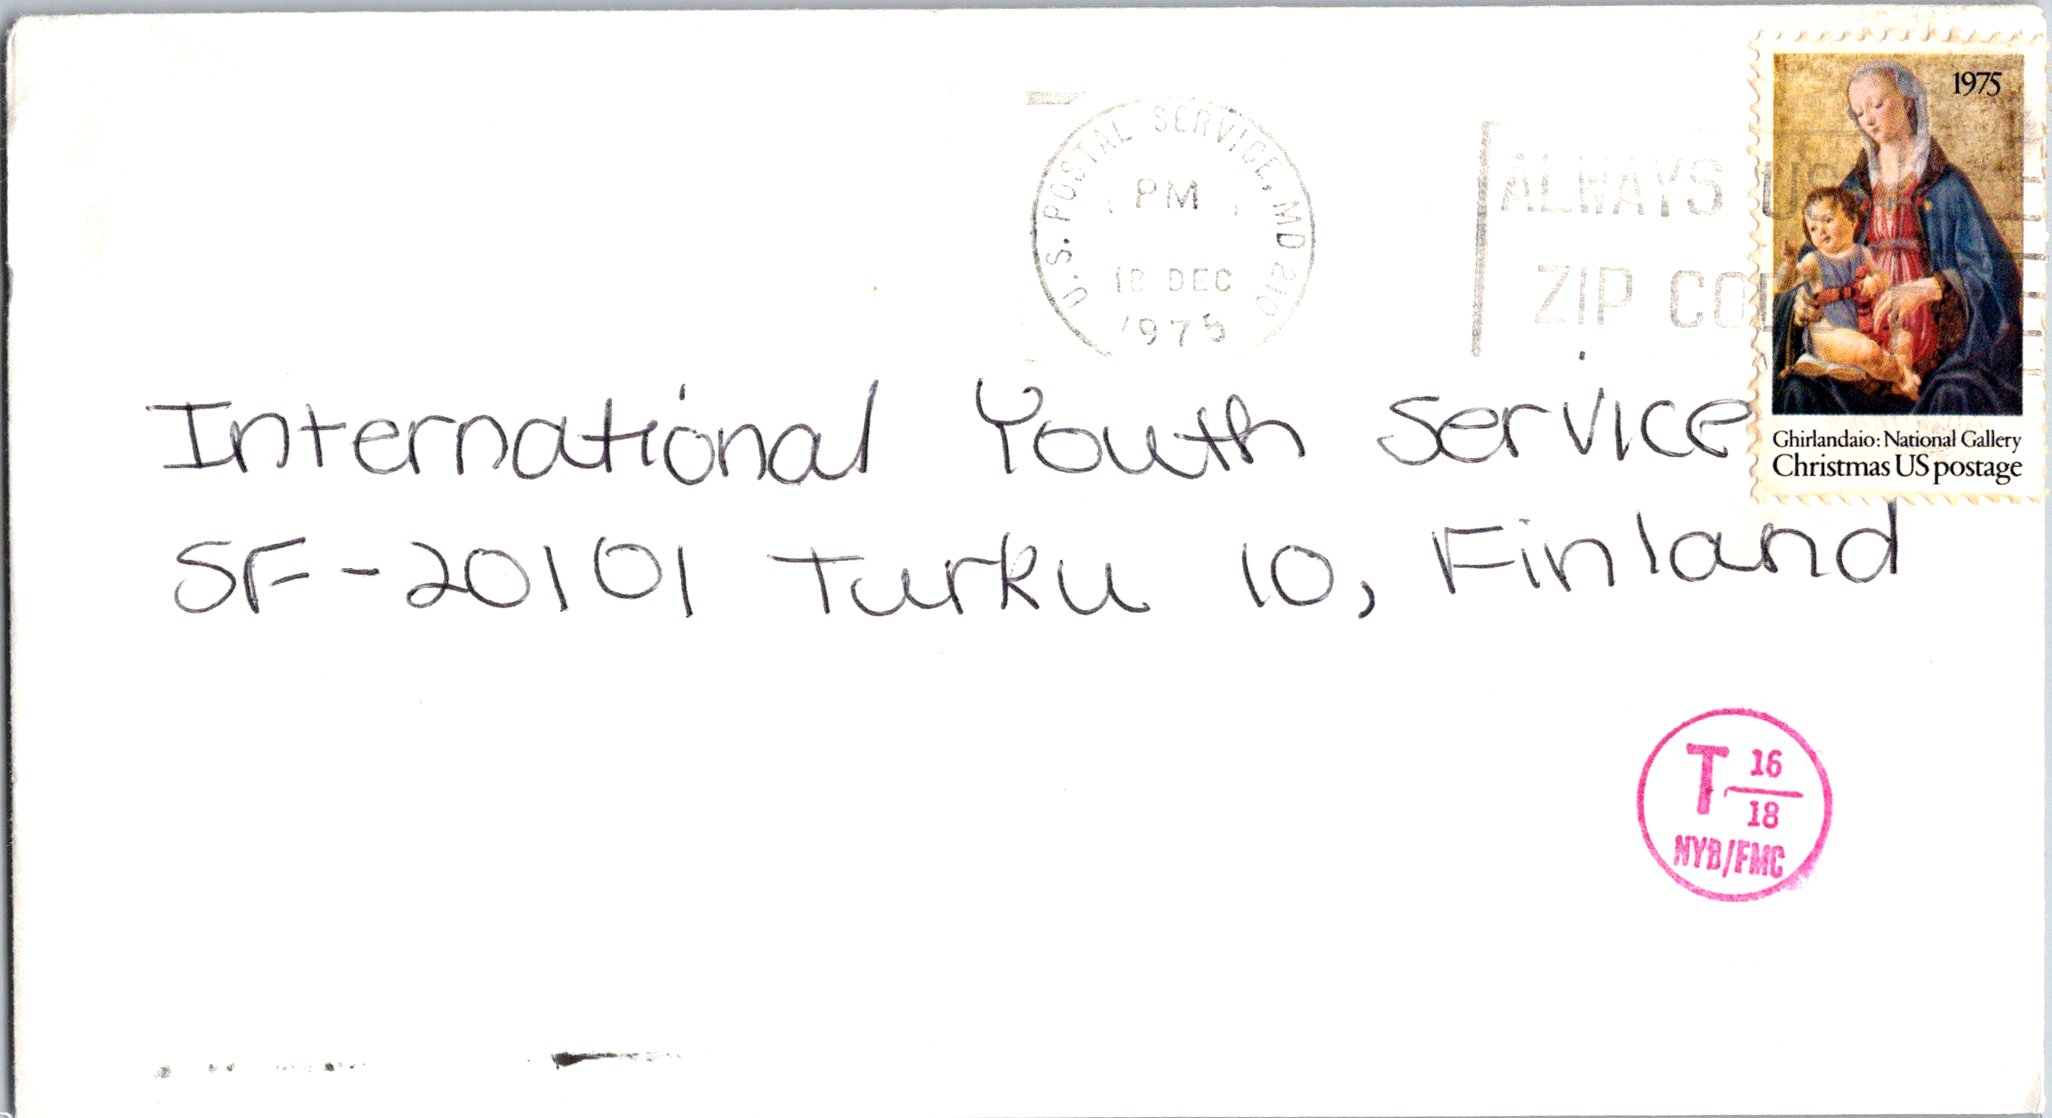 U.S. POSTAL SERVICE, MD 210
PM
18 DEC
1975
ALWAYS US
ZIP CO
1975
Ghirlandaio: National Gallery
Christmas US postage
International Youth Service
SF-20101 Turku 10, Finland
T 16
18
NYB/FMC